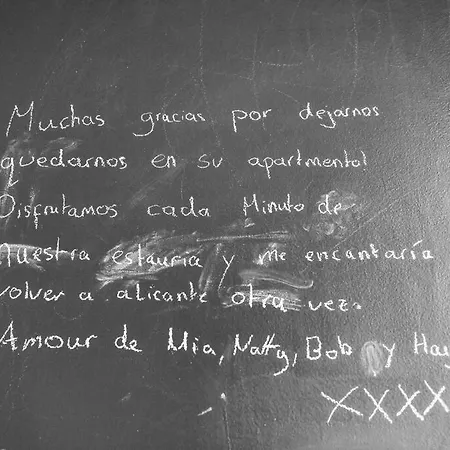 Muchas gracias por dejarnos
quedarnos en su apartmental
Disfrutamos cada Minuto de
nuestra estauria y me encantaría
volver a alicante otra vez.
Amour de Mia, Natty, Bob y
XXXX